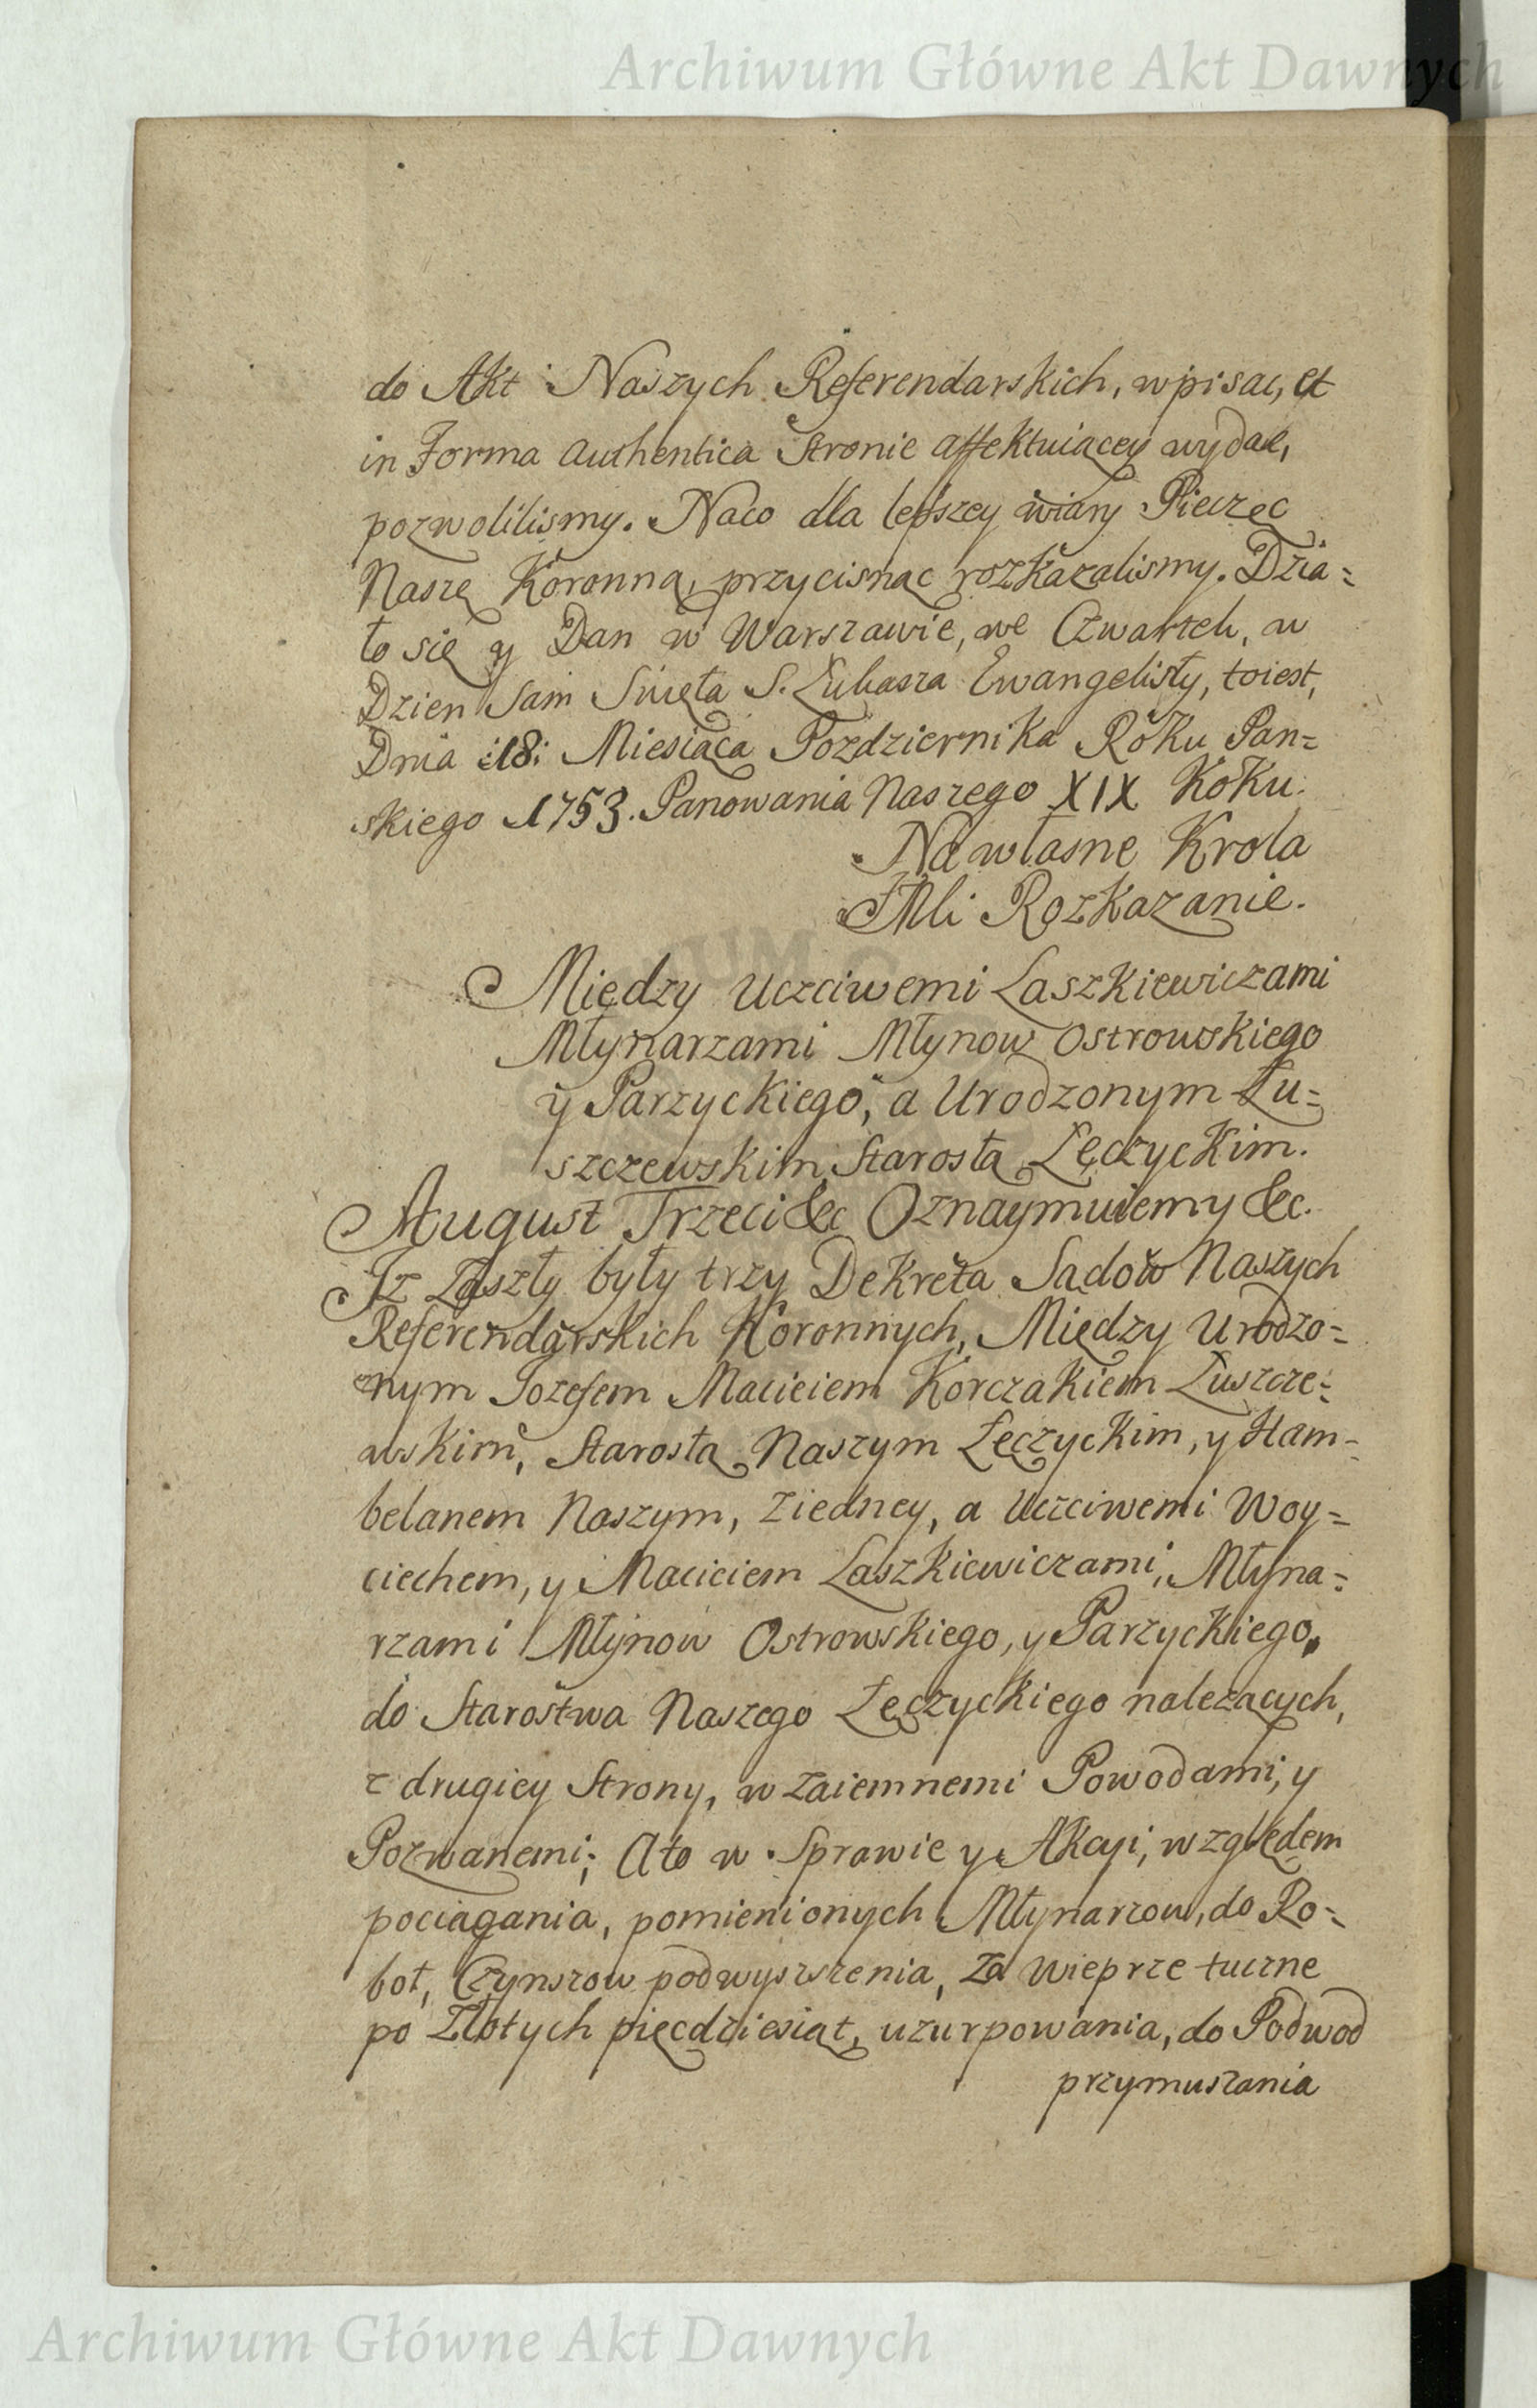 Archiwum Główne Akt Dawnych
do Akt Naszych Referendarskich, wpisac, et
in Forma Authentica Stronie affektuiącey wydac,
pozwolilismy. Naco dla lepszey wiary Pieczęc
Naszę Koronną, przycisnąc rozkazalismy. Dzia=
ło się y Dan w Warszawie, we Czwartek, w
Dzien Sam Swięta S. Łukasza Ewangelisty, toiest,
Dnia :18: Miesiąca Pozdziernika Roku Pan=
skiego 1753. Panowania Naszego XIX Roku.
Na własne Krola
JMci Rozkazanie.
Między Uczciwemi Laszkiewiczami
Młynarzami Młynow Ostrowskiego
y Parzyckiego, a Urodzonym Łu=
szczewskim, Starostą Łęczyckim.
August Trzeci &c Oznaymuiemy &c.
Iz Zaszły były trzy Dekreta Sądow Naszych
Referendarskich Koronnych, Między Urodzo=
nym Jozefem Macieiem Korczakiem Łuszcze=
wskim, Starostą Naszym Łęczyckim, y Ham=
belanem Naszym, Ziedney, a Uczciwemi Woy=
ciechem, y Macieiem Laszkiewiczami, Młyna=
rzami Młynow Ostrowskiego, y Parzyckiego,
do Starostwa Naszego Łęczyckiego nalezących,
z drugiey Strony, wzaiemnemi Powodami, y
Pozwanemi; Ato w Sprawie y Akcyi, względem
pociągania, pomienionych Młynarzow, do Ro=
bot, Czynszow podwyszszenia, Za Wieprze tuczne
po Złotych pięcdziesiąt, uzurpowania, do Podwod
przymuszania
Archiwum Główne Akt Dawnych